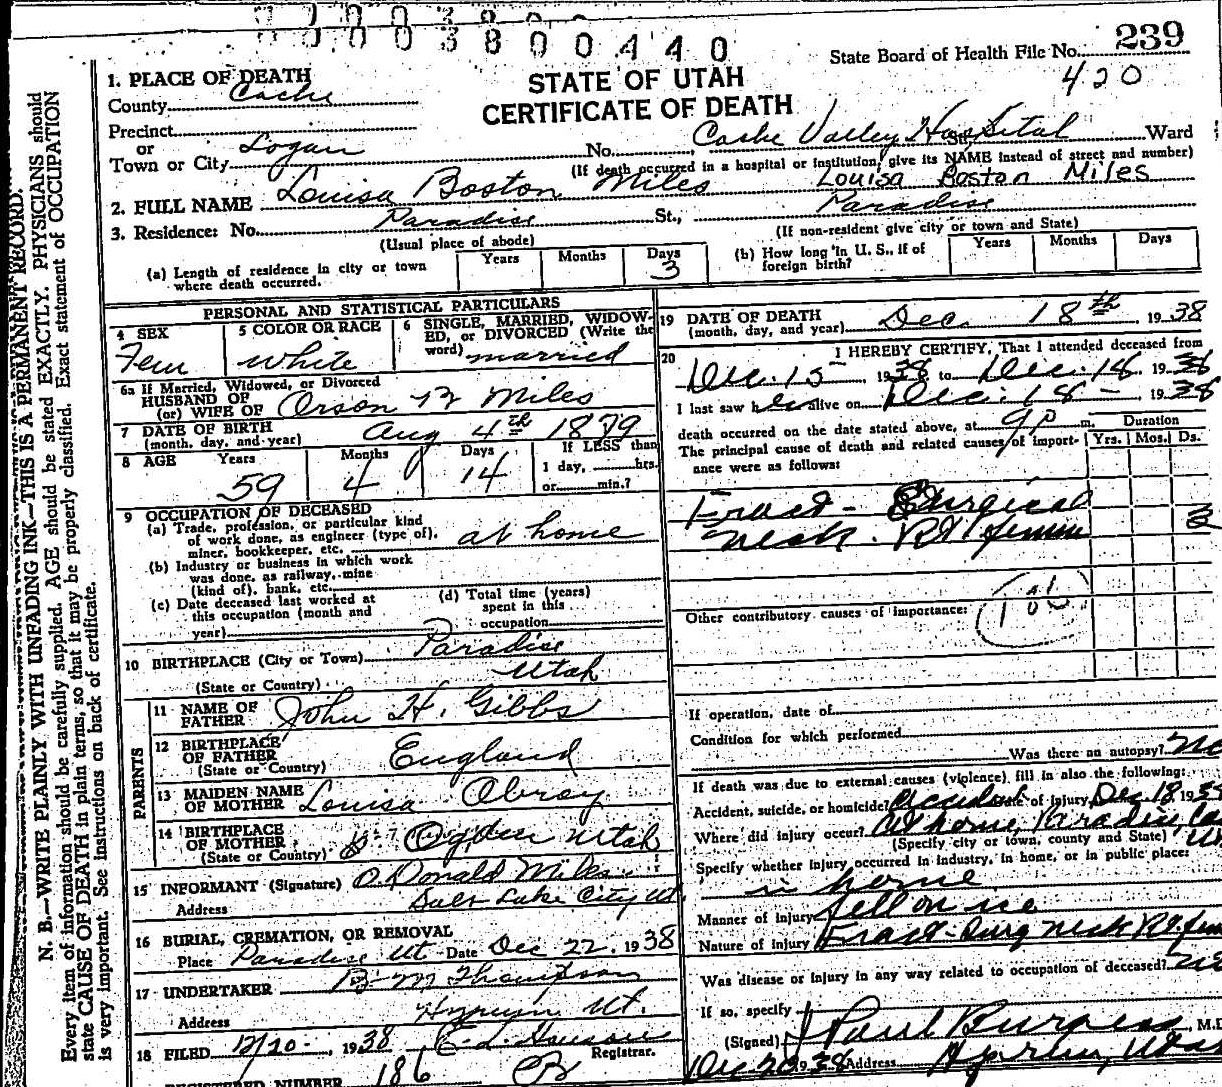 0 0 0 3 8 0 0 4 4 0
State Board of Health File No. 239
420
STATE OF UTAH
CERTIFICATE OF DEATH
1. PLACE OF DEATH
County Cache
Precinct
or
Town or City Logan No. Cache Valley Hospital St., Ward
(If death occurred in a hospital or institution, give its NAME instead of street and number)
2. FULL NAME Louisa Boston Miles Louisa Boston Miles
3. Residence: No. Paradise St., Paradise
(Usual place of abode) (If non-resident give city or town and State)
(a) Length of residence in city or town where death occurred. Years Months Days 3
(b) How long in U. S., if of foreign birth? Years Months Days
PERSONAL AND STATISTICAL PARTICULARS
4 SEX Fem
5 COLOR OR RACE White
6 SINGLE, MARRIED, WIDOWED, or DIVORCED (Write the word) married
6a If Married, Widowed, or Divorced
HUSBAND OF
(or) WIFE OF Orson Miles
7 DATE OF BIRTH
(month, day, and year) Aug 4th 1879
8 AGE Years 59 Months 4 Days 14
If LESS than
1 day, hrs.
or min.?
9 OCCUPATION OF DECEASED
(a) Trade, profession, or particular kind
of work done, as engineer (type of),
miner, bookkeeper, etc. at home
(b) Industry or business in which work
was done, as railway, mine
(kind of), bank, etc.
(c) Date deceased last worked at
this occupation (month and
year)
(d) Total time (years)
spent in this
occupation
10 BIRTHPLACE (City or Town) Paradise
(State or Country) Utah
PARENTS
11 NAME OF
FATHER John H. Gibbs
12 BIRTHPLACE
OF FATHER England
(State or Country)
13 MAIDEN NAME
OF MOTHER Louisa Obray
14 BIRTHPLACE
OF MOTHER Ogden Utah
(State or Country)
15 INFORMANT (Signature) O. Donald Miles
Address Salt Lake City Ut.
16 BURIAL, CREMATION, OR REMOVAL
Place Paradise Ut Date Dec 22. 1938
17 UNDERTAKER Thompson
Address Hyrum Ut.
18 FILED 12/20- 1938 Registrar.
REGISTERED NUMBER 186
19 DATE OF DEATH
(month, day, and year) Dec. 18th 1938
20 I HEREBY CERTIFY, That I attended deceased from
Dec. 15 1938 to Dec. 18 1938
I last saw her alive on Dec. 18 - 1938
death occurred on the date stated above, at 9 P m.
The principal cause of death and related causes of importance were as follows:
Duration
Yrs. Mos. Ds.
Fract - Surgical
neck. Rt femur 3
Other contributory causes of importance:
If operation, date of
Condition for which performed
Was there an autopsy? No
If death was due to external causes (violence) fill in also the following:
Accident, suicide, or homicide? Accident Date of injury Dec. 18 1938
Where did injury occur? At home, Paradise, Ca
(Specify city or town, county and State) Ut
Specify whether injury occurred in industry, in home, or in public place:
in home
Manner of injury fell on ice
Nature of injury Fract - Surg neck Rt fem
Was disease or injury in any way related to occupation of deceased? No
If so, specify
(Signed) J Paul Burgess M.D
Dec 20 1938 Address Hyrum, Utah
N. B.—WRITE PLAINLY WITH UNFADING INK—THIS IS A PERMANENT RECORD.
Every item of information should be carefully supplied. AGE should be stated EXACTLY. PHYSICIANS should
state CAUSE OF DEATH in plain terms, so that it may be properly classified. Exact statement of OCCUPATION
is very important. See instructions on back of certificate.